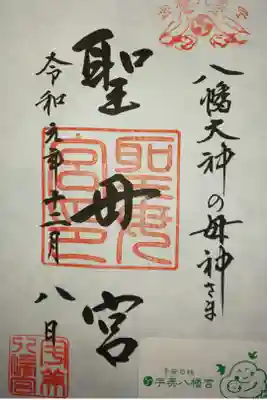 八幡大神の母神さま
聖母宮
令和元年十二月八日
聖母宮印
子安の杜
宇美八幡宮
宇美八幡宮